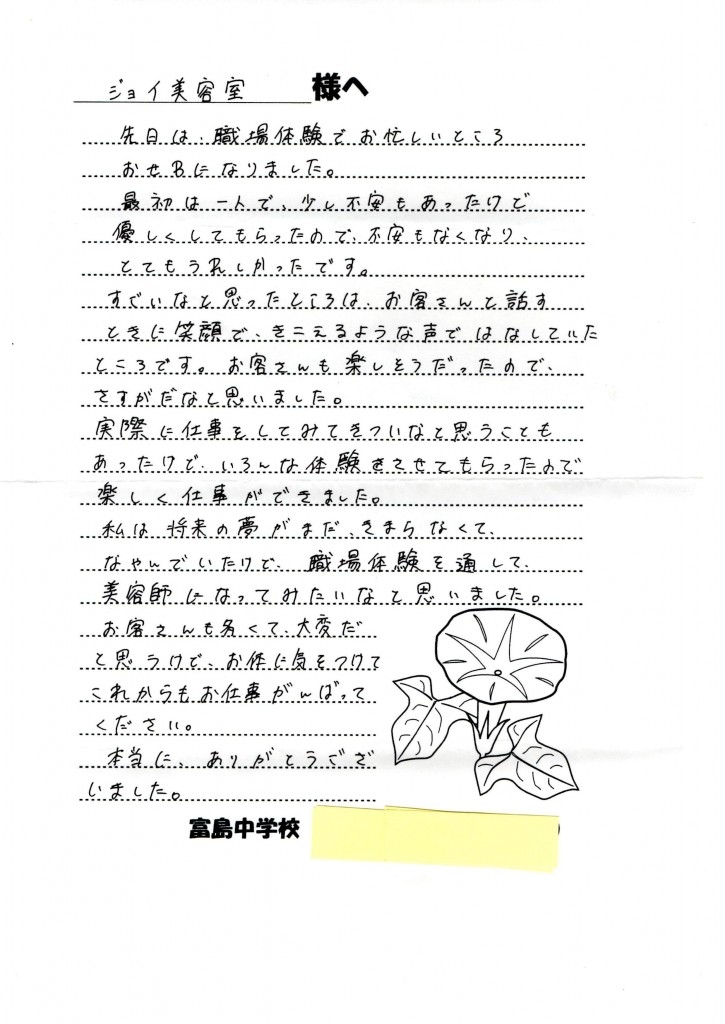 ジョイ美容室 様へ
先日は、職場体験でお忙しいところ
おせわになりました。
最初は一人で、少し不安もあったけど
優しくしてもらったので、不安もなくなり、
とてもうれしかったです。
すごいなと思ったところは、お客さんと話す
ときに笑顔で、きこえるような声ではなしていた
ところです。お客さんも楽しそうだったので、
さすがだなと思いました。
実際に仕事をしてみてきついなと思うことも
あったけど、いろんな体験をさせてもらったので
楽しく仕事ができました。
私は将来の夢がまだ、きまらなくて、
なやんでいたけど、職場体験を通して、
美容師になってみたいなと思いました。
お客さんも多くて、大変だ
と思うけど、お体に気をつけて
これからもお仕事がんばって
ください。
本当に、ありがとうござ
いました。
富島中学校